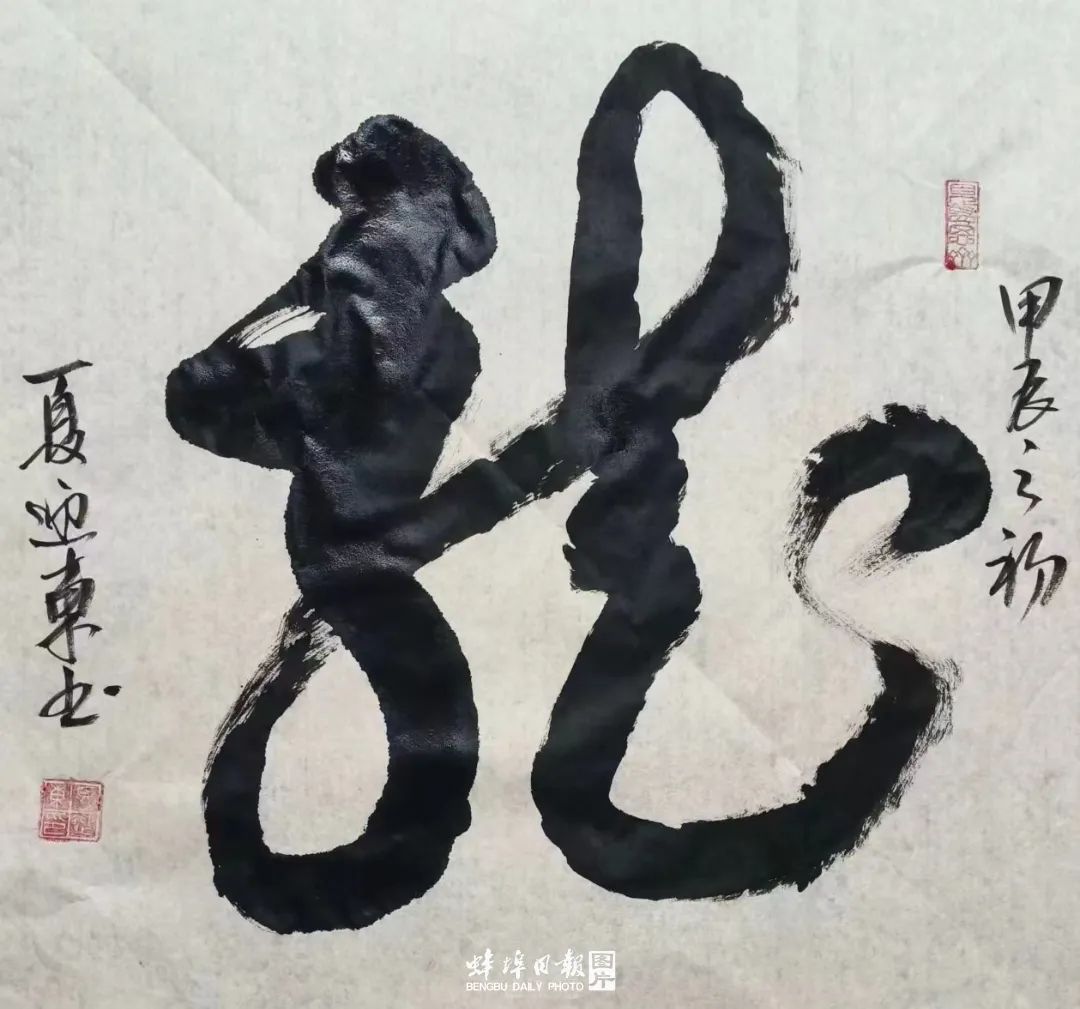 甲辰之初
龍
夏迎東书
蚌埠日报 图片
BENGBU DAILY PHOTO